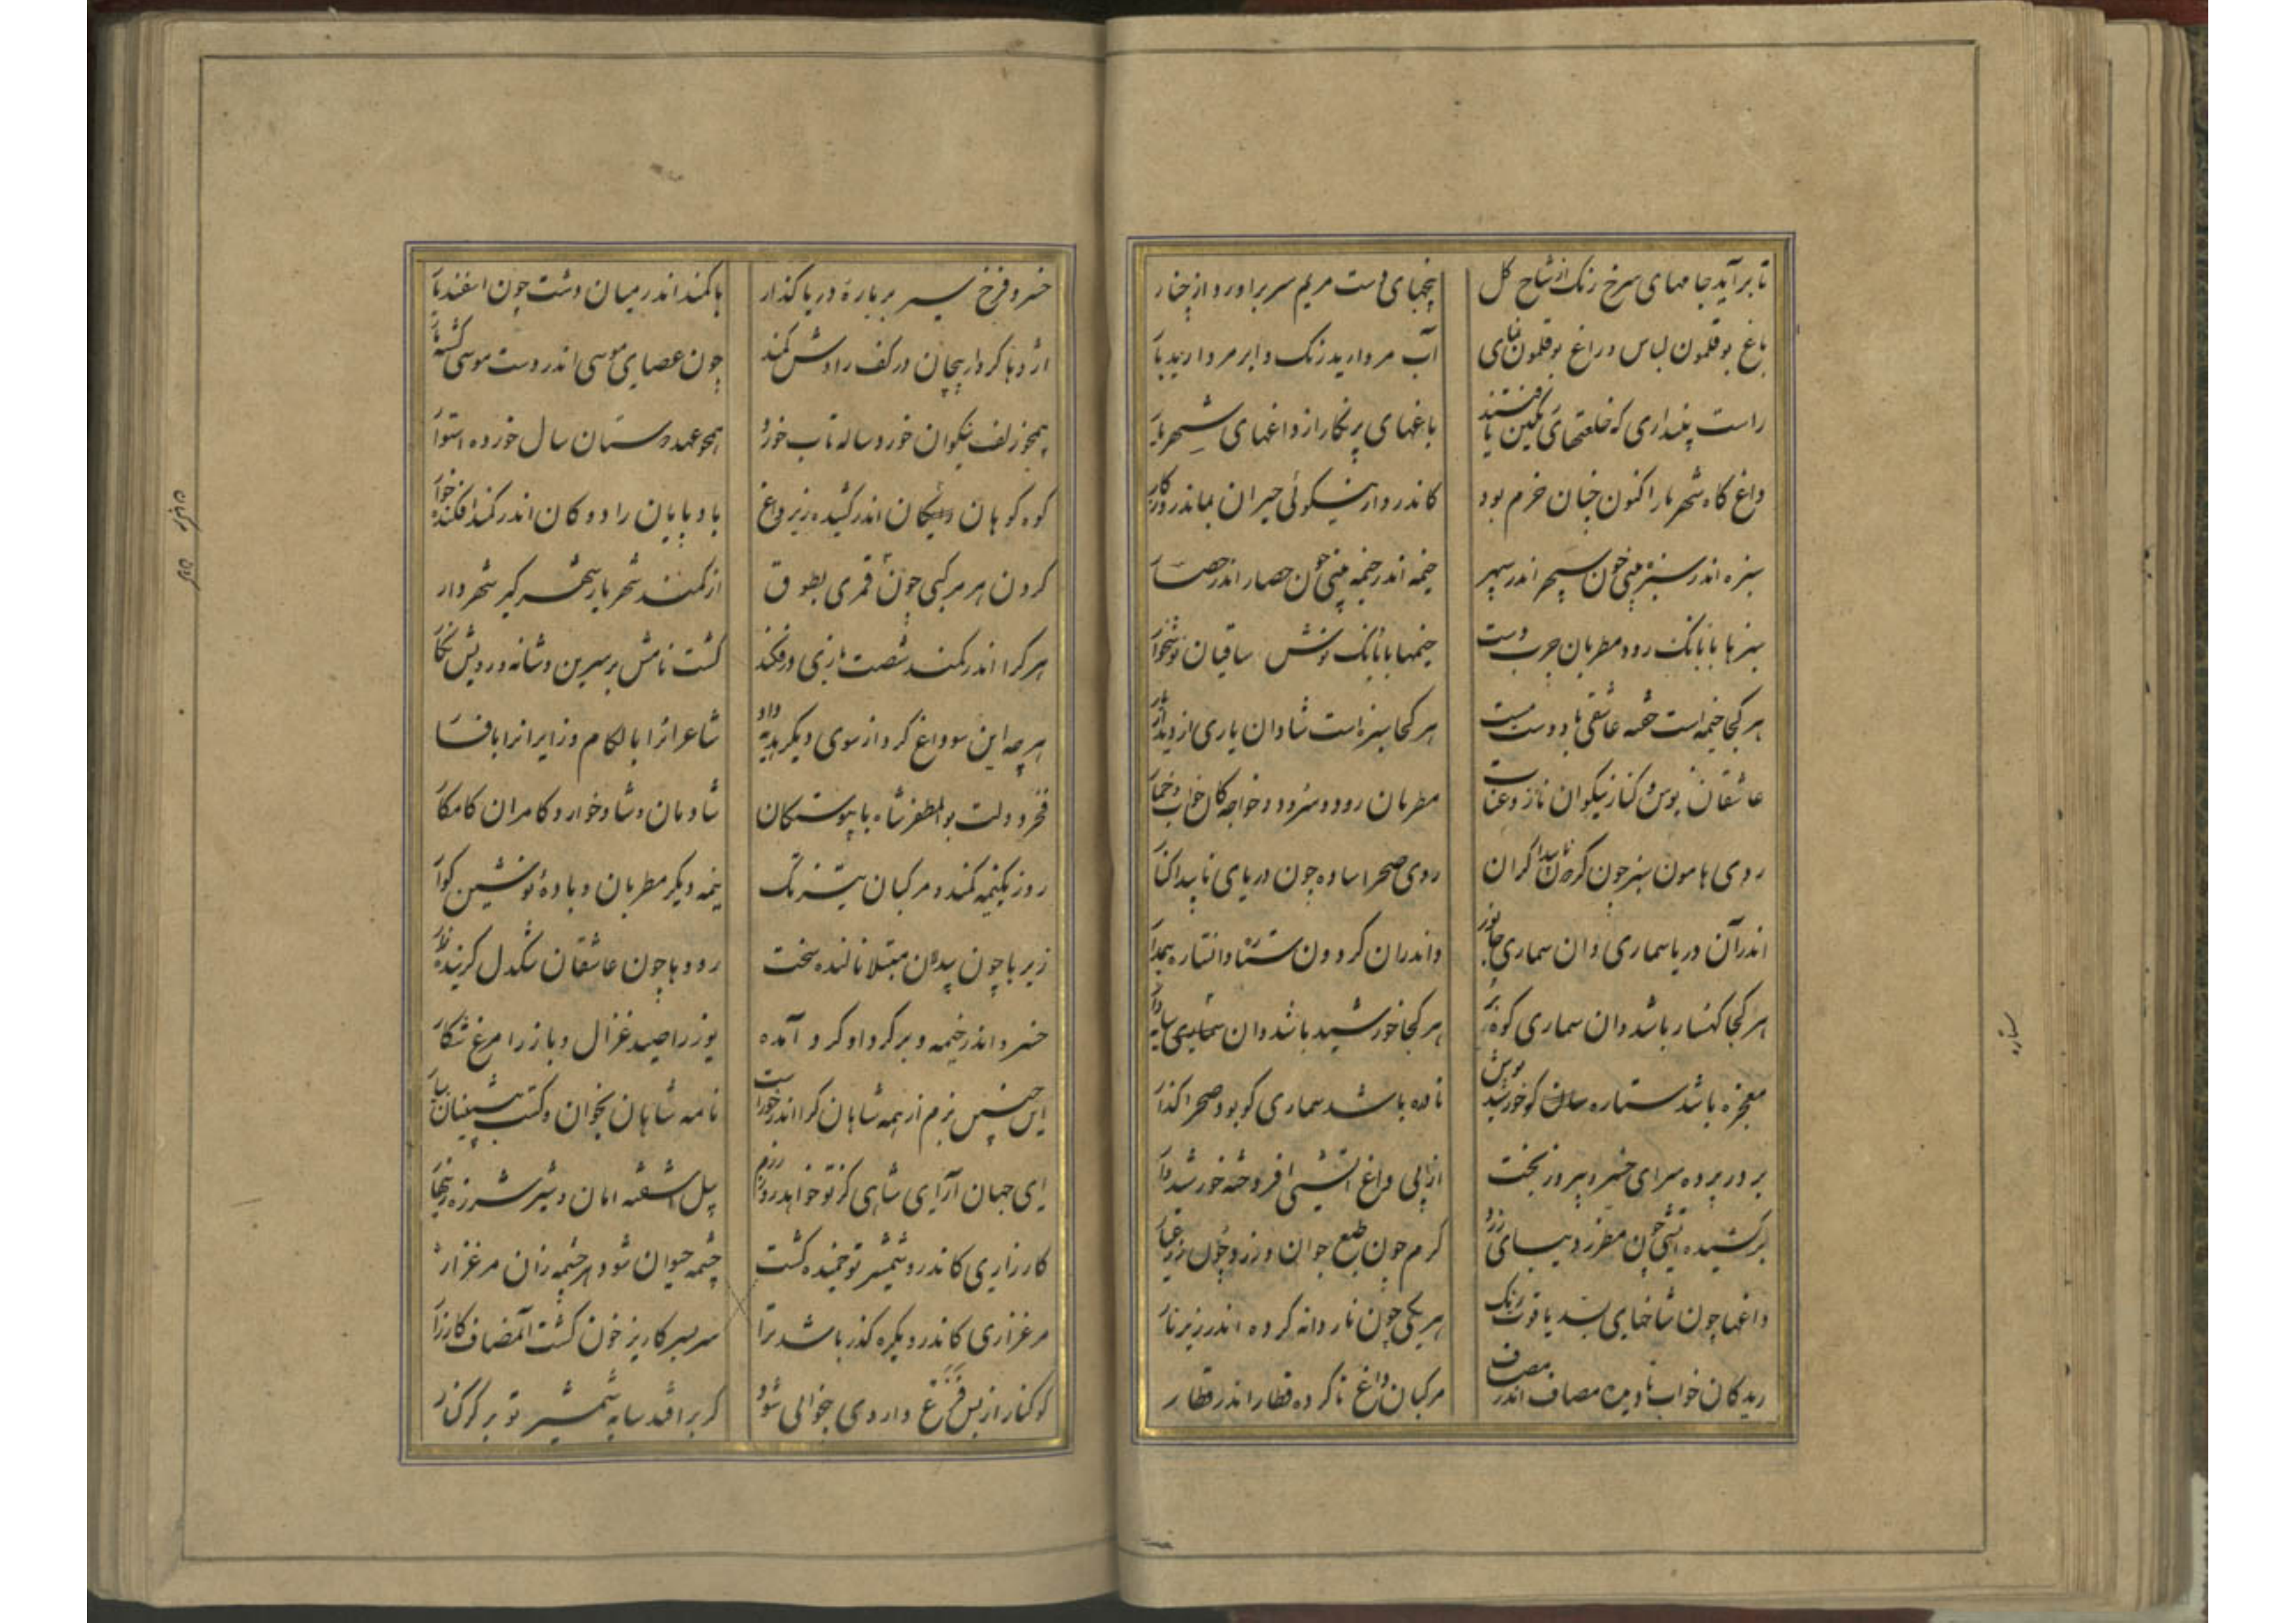 تا برآید جامهای سرخ رنگ از شاخ گل پنجهای دست مریم سر برآورد از چنار
باغ بوقلمون لباس و راغ بوقلمون نمای آب مروارید رنگ و ابر مروارید بار
راست پنداری که خلعتهای رنگین یافتند باغهای پرنگار از داغهای شهریار
داغ گاه شهریار اکنون چنان خرم بود کاندرو از نیکوئی حیران بماند روزگار
سبزه اندر سبزه بینی چون سپهر اندر سپهر خیمه اندر خیمه بینی چون حصار اندر حصار
سبزها با بانک رود مطربان چرب دست خیمها با بانک نوش ساقیان نوشخوار
هر کجا خیمه است خفته عاشقی با دوست مست هر کجا سبزه است شادان یاری از دیدار یار
عاشقان بوس و کنار نیکوان ناز و عتاب مطربان رود و سرود و خواجه کان خواب و خمار
روی هامون سبز چون گردون ناپیدا کران روی صحرا ساده چون دریای ناپیدا کنار
اندر آن دریا سماری وان سماری جانور واندران گردون ستاره وان ستاره بیمدار
هر کجا کهسار باشد وان سماری کوه بر هر کجا خورشید باشد وان سماری سایه دار
معجزه باشد ستاره کو خورشید پوش نادره باشد سماری کو بود صحرا گذار
بر در پرده سرای خسرو پیروز بخت از پی داغ آتشی افروخته خورشیدوار
برکشیده آتشی چون مطرد دیبای زرد گرم چون طبع جوان و زرد چون زر عیار
داغها چون شاخهای بسد یاقوت رنگ هر یکی چون ناردانه کرده اندر زیر نار
ریدکان خواب نادیده مصاف اندر مصاف مرکبان داغ ناکرده قطار اندر قطار
ستاره
خسرو فرخ سیر بر باره دریا گذار با کمند اندر میان دشت چون اسفندیار
اژدها کردار پیچان در کف رادش کمند چون عصای موسی اندر دست موسی گشته مار
همچو زلف نیکوان خورد ساله تاب خورد همچو عهد دوستان سال خورده استوار
کوه کوهان اندر کشیده زیر داغ بادپایان را دوکان اندر کمند افکنده خوار
گردن هر مرکبی چون قمری بطوق از کمند شهریار شهر گیر شهردار
هر کرا اندر کمند شصت بازی درفکند گشت نامش بر سرین و شانه و رویش نگار
هر چه این سو داغ کرد از سوی دیگر هدیه داد شاعرانرا با لگام و زایرانرا با فسار
فخر دولت بوالمظفر شاه با پیوستگان شادمان و شادخوار و کامران کامگار
روز یکنیمه کمند و مرکبان تیز تک نیمه دیگر مطربان و باده نوشین گوار
زیرها چون بیدلان مبتلا نالنده سخت رودها چون عاشقان تنگدل گرینده زار
خسرو اندر خیمه و بر گرد او گرد آمده یوز را صید غزال و باز را مرغ شکار
این چنین بزم از همه شاهان کرا اندر خوراست نامه شاهان بخوان و کتب پیشینیان بیار
ای جهان آرای شاهی کز تو خواهد روز رزم پیل آشفته امان و شیر شرزه زینهار
کارزاری کاندرو شمشیر تو جنبنده گشت چشمه حیوان شود هر چشمه زان مرغزار
مرغزاری کاندرو یکره گذر باشد ترا سربسر کاریز خون گشت آن مصاف کارزار
کوکنار از بس فزع داروی بیخوابی شود گر برافتد سایه شمشیر تو بر کوکنار